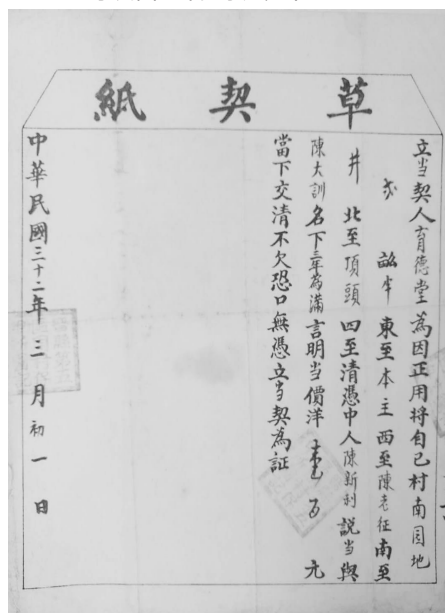 草契紙
立当契人育德堂為因正用将自己村南園地
畝 東至本主西至陳老征南至
井北至項頭四至清憑中人陳新利說当與
陳大訓名下三年為滿言明当價洋壹百元
當下交清不欠恐口無憑立当契為証
中華民國三十二年三月初一日